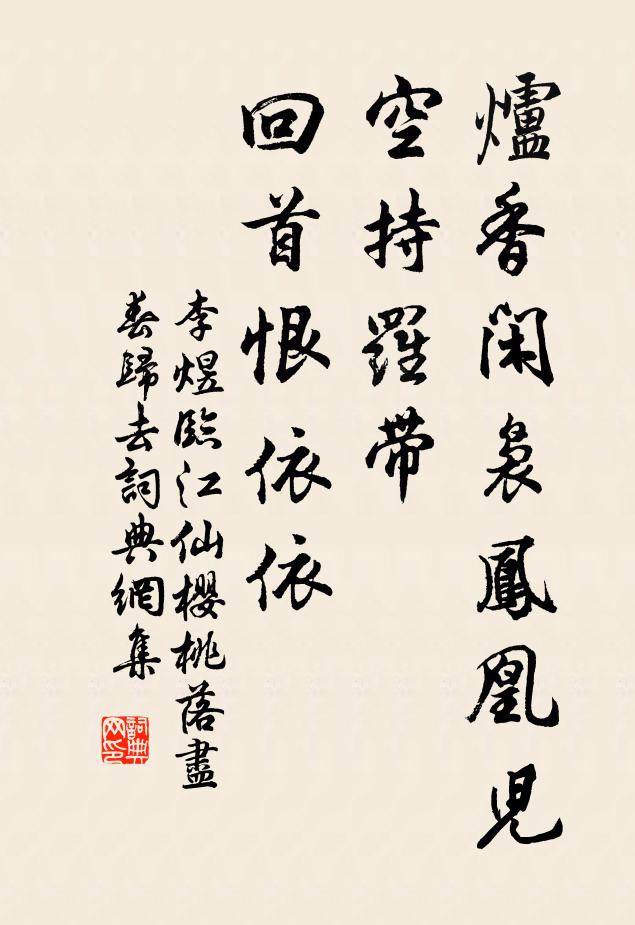 爐香閑裊鳳凰兒
空持羅帶
回首恨依依
李煜臨江仙櫻桃落盡
春歸去詞典網集
詞典
网印